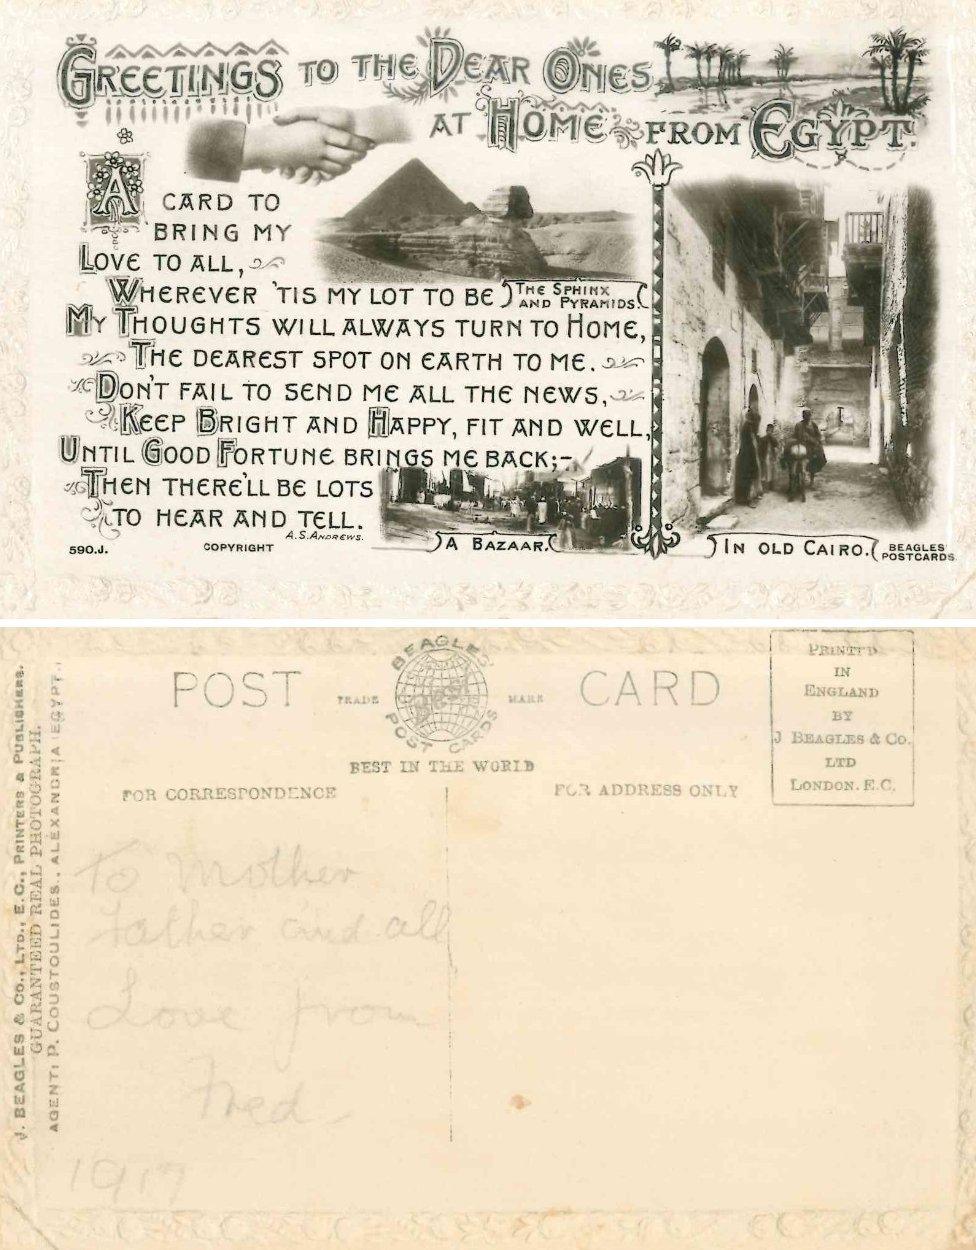 GREETINGS TO THE DEAR ONES
AT HOME FROM EGYPT.
A CARD TO
BRING MY
LOVE TO ALL,
WHEREVER 'TIS MY LOT TO BE
MY THOUGHTS WILL ALWAYS TURN TO HOME,
THE DEAREST SPOT ON EARTH TO ME.
DON'T FAIL TO SEND ME ALL THE NEWS,
KEEP BRIGHT AND HAPPY, FIT AND WELL,
UNTIL GOOD FORTUNE BRINGS ME BACK;-
THEN THERE'LL BE LOTS
TO HEAR AND TELL.
A.S. ANDREWS.
THE SPHINX
AND PYRAMIDS.
A BAZAAR.
IN OLD CAIRO.
590.J.
COPYRIGHT
BEAGLES'
POSTCARDS
POST CARD
TRADE MARK
BEAGLES'
BEST
POST CARDS
BEST IN THE WORLD
PRINTED
IN
ENGLAND
BY
J BEAGLES & Co.
LTD
LONDON. E.C.
FOR CORRESPONDENCE
FOR ADDRESS ONLY
J. BEAGLES & Co., LTD., E.C., PRINTERS & PUBLISHERS.
GUARANTEED REAL PHOTOGRAPH.
AGENT: P. COUSTOULIDES., ALEXANDRIA (EGYPT.)
To Mother
Father and all
Love from
Fred
1917